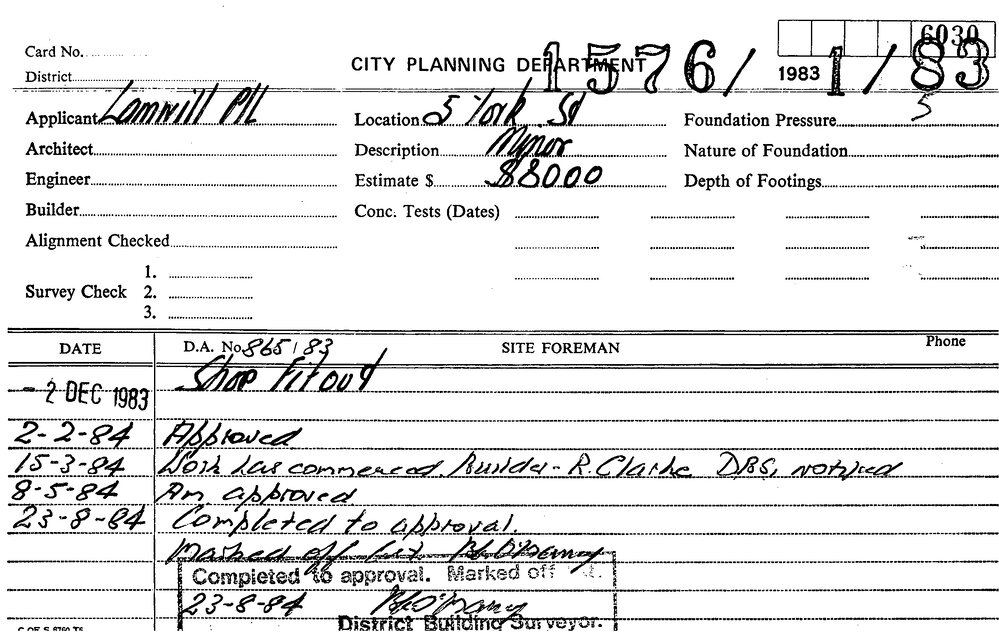 6030
Card No.
CITY PLANNING DEPARTMENT 1983 1576/1/83
District
Applicant Lamvill P/L Location 5 York St Foundation Pressure 5
Architect Description Mynor Nature of Foundation
Engineer Estimate $ $8000 Depth of Footings
Builder Conc. Tests (Dates)
Alignment Checked
1.
Survey Check 2.
3.
DATE D.A. No. 865/83 SITE FOREMAN Phone
- 2 DEC 1983 Shop Fitout
2-2-84 Approved
15-3-84 Work has commenced. Builder - R. Clarke DBS, notified
8-5-84 Am, approved
23-8-84 Completed to approval.
Marked off list
Completed to approval. Marked off
23-8-84
District Building Surveyor.